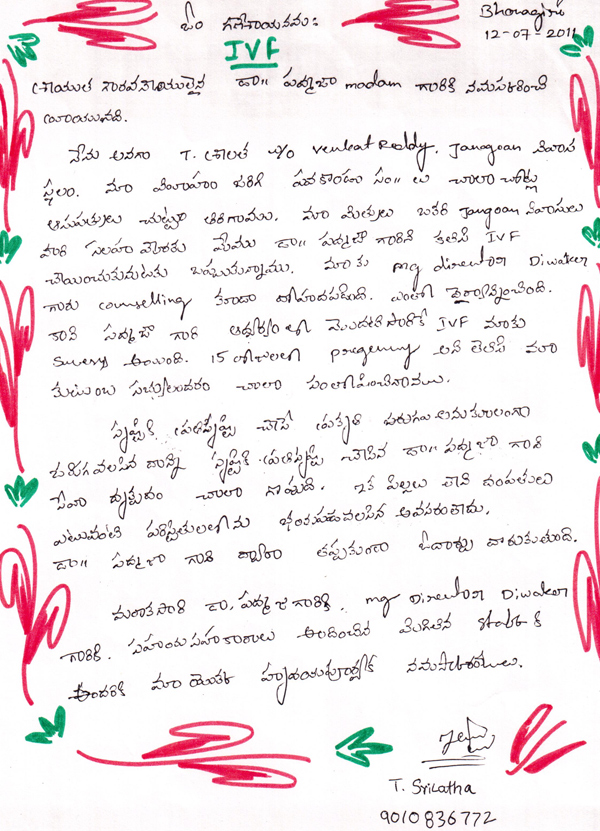 ఓం గణేశాయనమః
Bhonagiri
12-07-2011
IVF
గౌరవనీయులైన డా॥ పద్మజా madam గారికి నమస్కరించి
వ్రాయునది.
నేను అనగా T. శ్రీలత w/o Venkat Reddy, Jangoan నివాస
స్థలం. మా వివాహం జరిగి పదకొండు సం॥లు చాలా చోట్ల
ఆసుపత్రులు చుట్టూ తిరిగాము. మా మిత్రులు ఒకరి Jangoan నివాసులు
వారి సలహా మేరకు మేము డా॥ పద్మజా గారిని కలిసి IVF
చేయించుకునుటకు ఒప్పుకున్నాము. మాకు mg director Diwaker
గారు counselling కూడా దోహదపడింది. ఎంతో
కానీ పద్మజా గారి ఆధ్వర్యంలో మొదటిసారికే IVF మాకు
అయింది. 15 రోజులలో అని తెలిసి మా
కుటుంబ సభ్యులందరం చాలా సంతోషించినాము.
సృష్టికి ప్రతిసృష్టి చేసే ప్రకృతి
జరుగవలసిన దాన్ని సృష్టికి ప్రతిసృష్టి చేసిన డా॥ పద్మజా గారి
సేవా దృక్పదం చాలా గొప్పది. ఇక పిల్లలు కాని దంపతులు
ఎటువంటి పరిస్థితులలోను భయపడవలసిన అవసరంలేదు.
డా॥ పద్మజా గారి ద్వారా తప్పకుండా
మరొకసారి డా. పద్మజ గారికి, mg Director Diwaker
గారికి. సహాయసహకారాలు అందించిన మిగిలిన staff కి
అందరికి మా యొక్క హృదయపూర్వక నమస్కారములు.
T. Srilatha
9010836772